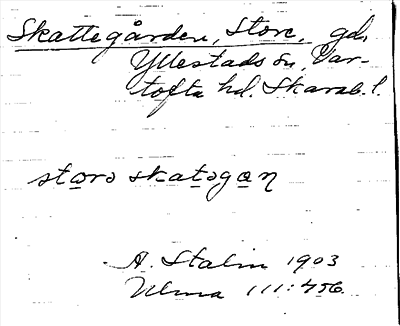 Skattegården, Store, gd,
Yllestads sn, Var-
tofta hd. Skarab. l.
storə skatəgɑn
A. Stalin 1903
Ulma 111:456.